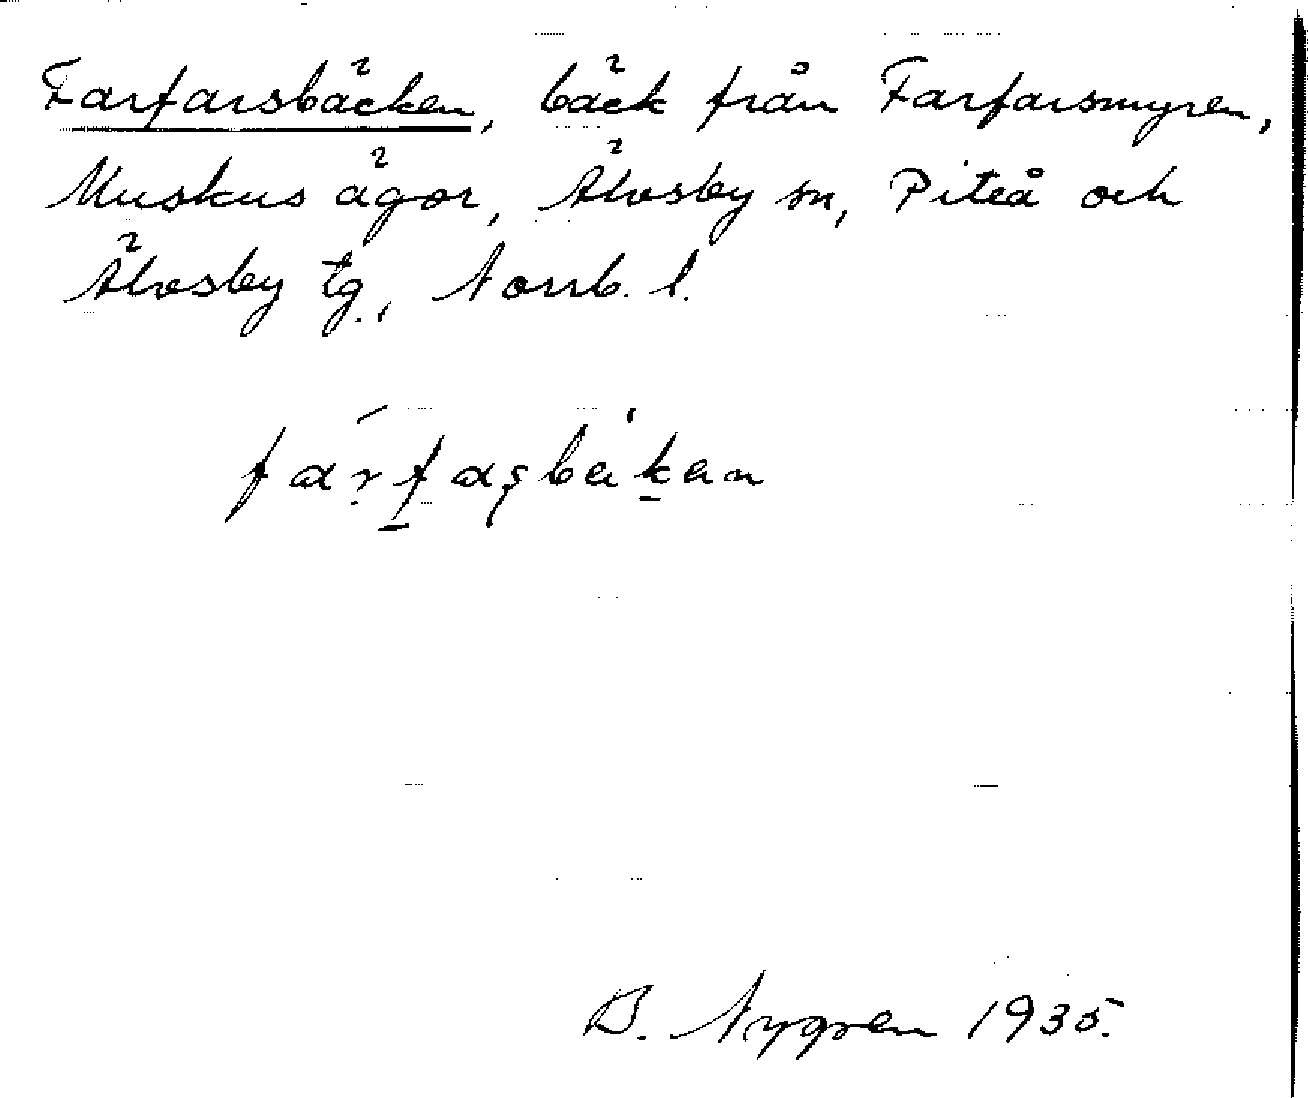 Farfarsbäcken, bäck från Farfarsmyren,
Muskus ägor, Älvsby sn, Piteå och
Älvsby tg., Norrb. l.
B. Nygren 1935.